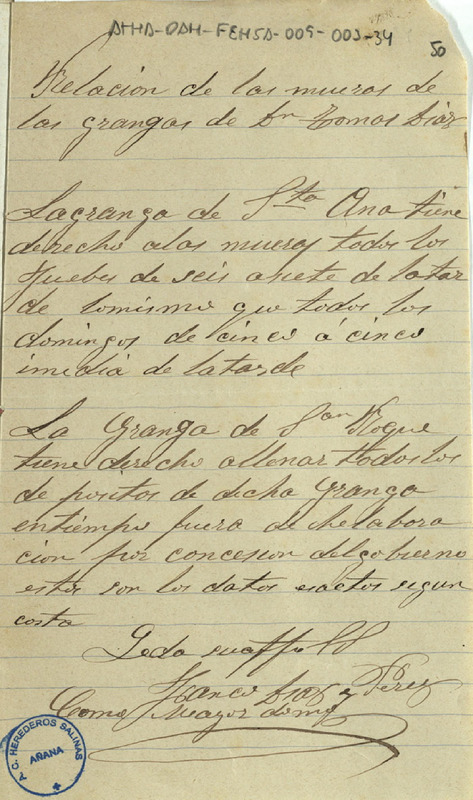 AHHA-DAH-FEHSA-009-003-34
50
Relacion de las mueras de
las grangas de Dn Tomas Diaz
Lagranga de Sta Ana tiene
derecho alas mueras todos los
Juebes de seis asiete de latar
de lomismo que todos los
domingos de cinco á cinco
imedia de latarde
La Granga de San Roque
tiene derecho allenar todos los
de positos de dicha granga
entiempo fuera de helabora
cion por concesion delgobierno
estos son los datos esactos segun
costa
Franco Diaz y Perez
Como Mayor domo
P. C. HEREDEROS SALINAS
AÑANA